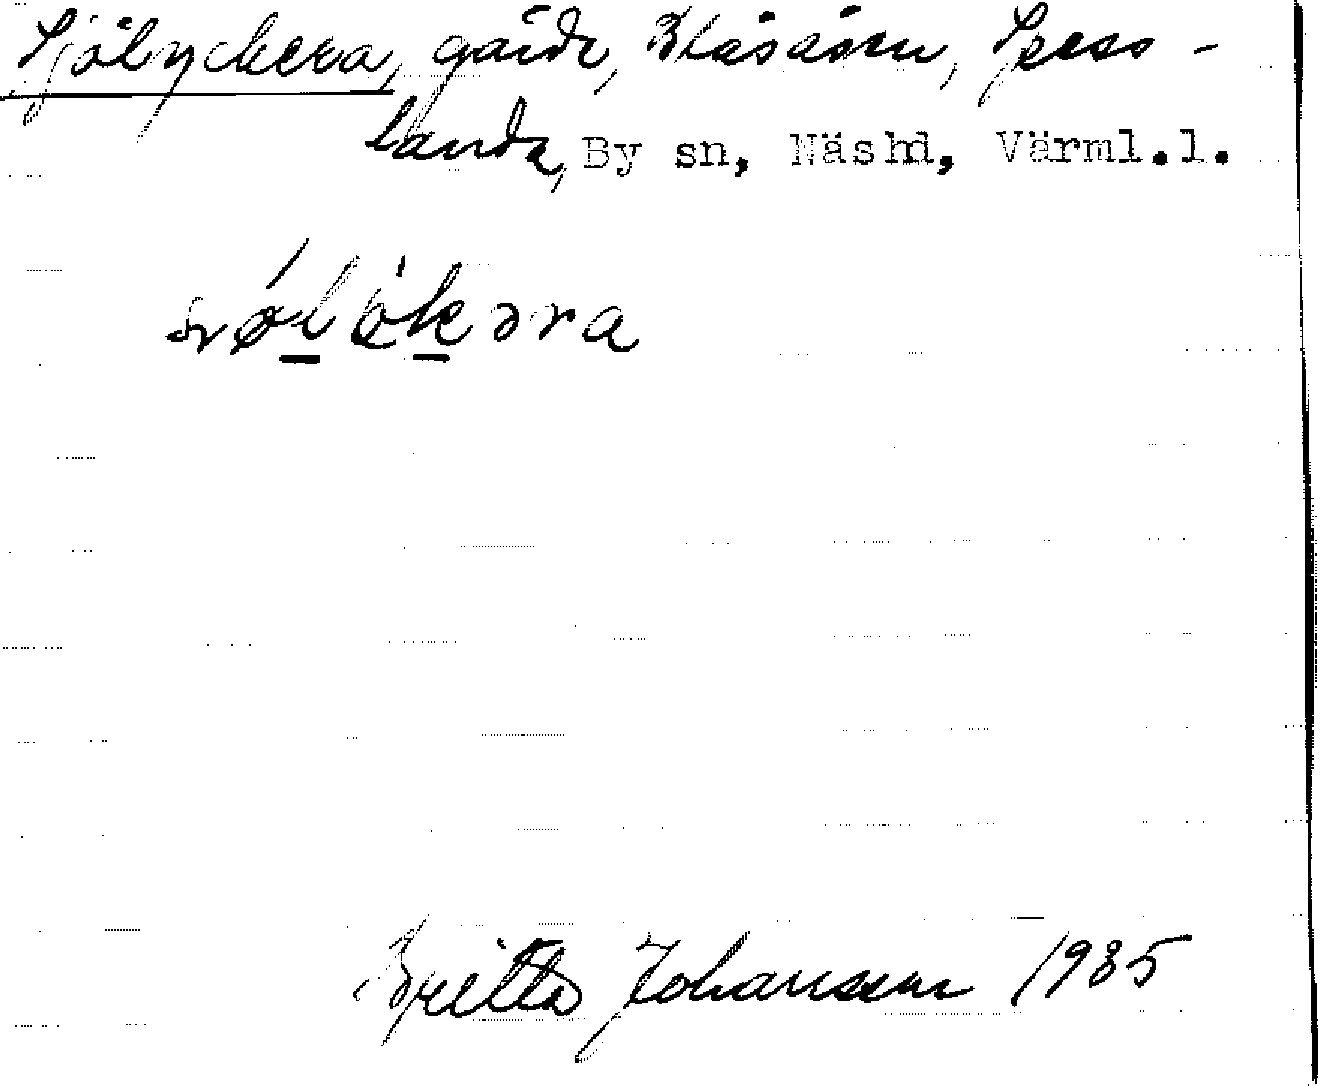 Sjölyckera, gärde, Blåsåsen, Spess-
landa, By sn, Näshd, Värml.l.
Britta Johansson 1935